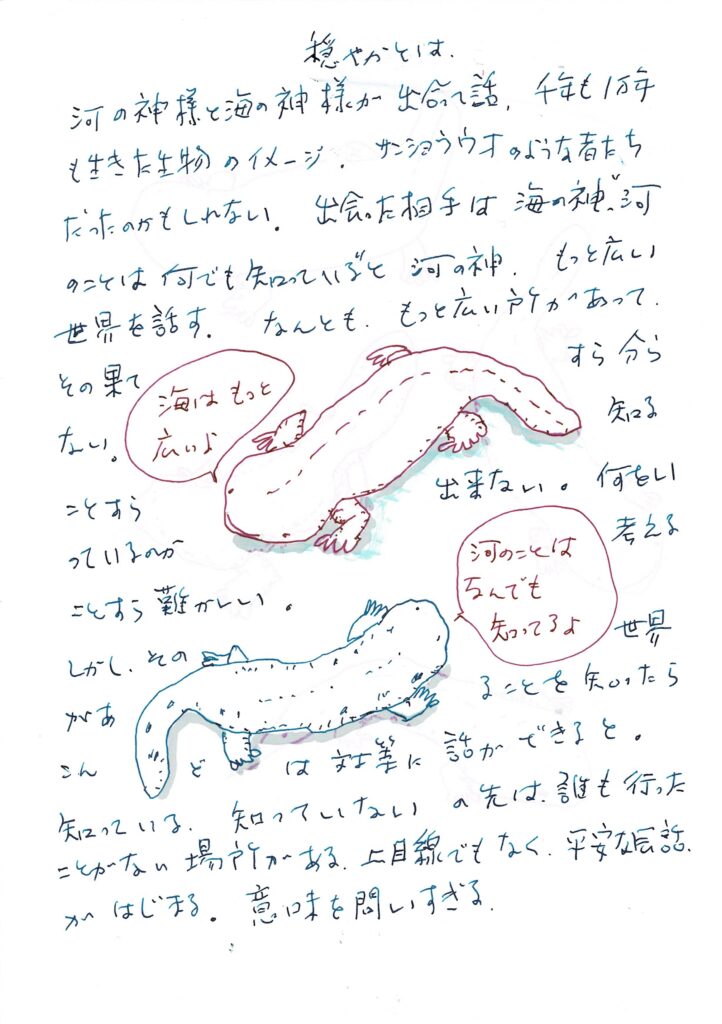 穏やかとは.
河の神様と海の神様が出会って話、千年も1万年
も生きた生物のイメージ. サンショウウオのような者たち
だったのかもしれない. 出会った相手は海の神、河
のことは何でも知っているぞと河の神. もっと広い
世界を話す. なんとも、もっと広い所があって.
その果て すら分ら
ない。 知る
ことすら 出来ない。何をい
っているのか 考える
ことすら難かしい.
海はもっと
広いよ
河のことは
なんでも
知ってるよ
しかし、その 世界
があ ることを知ったら
こん ど は対等に話ができると.
知っている. 知っていない の先は、誰も行った
ことがない場所がある、上目線でもなく、平安な会話.
がはじまる。意味を問いすぎる.